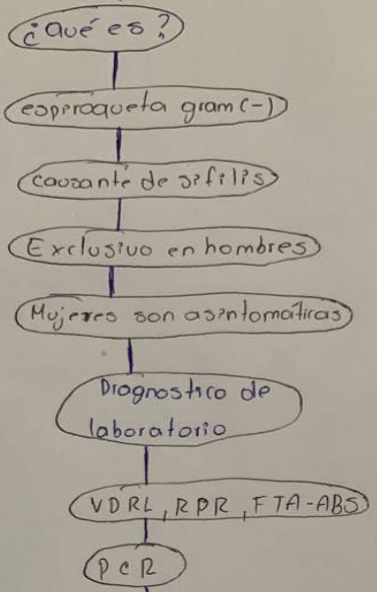 ¿Qué es?
esperoqueta gram (-)
causante de sifilis
Exclusivo en hombres
Mujeres son asintomáticas
Diagnostico de
laboratorio
VDRL, RPR, FTA-ABS
PCR